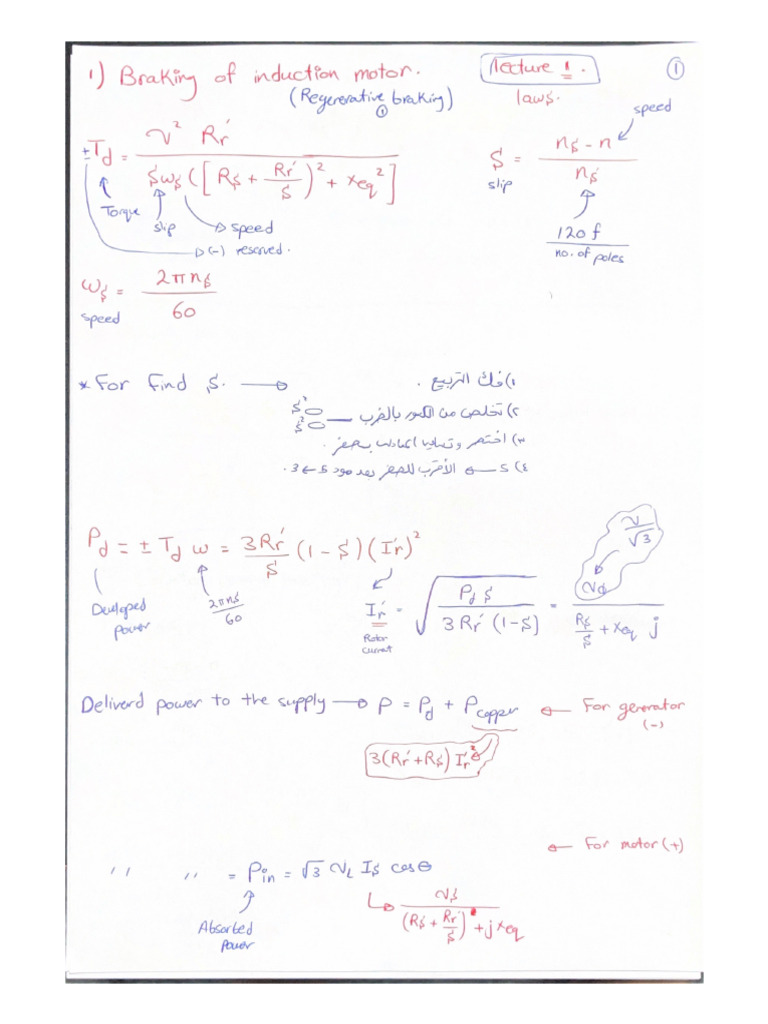 1) Braking of induction motor. lecture 1. ①
(Regenerative braking) laws.
①
± T_d = V² Rr' / (S ω_s ([R_s + Rr'/S)² + X_eq²]
Torque
slip
speed
(-) reserved.
S = (n_s - n) / n_s
slip
speed
120 f / no. of poles
ω_s = 2π n_s / 60
speed
* For Find S. →
١) فك التربيع .
٢) تخلص من الكسور بالضرب
S²
S²
٣) اختصر و
٤) S ← الأقرب للصفر بعد مود 5 → 3 .
P_d = ± T_d ω = 3Rr'/S (1 - S) (Ir')²
Developed power
2πn_s / 60
Ir' = √(P_d S / 3 Rr' (1-S)) = Vφ / (R_s/S + X_eq j)
Rotor current
V / √3
Deliverd power to the supply → P = P_d + P_copper ← For generator
(-)
3(Rr' + R_s) Ir'²
← For motor (+)
,, ,, = P_in = √3 V_L I_s cos θ
Absorbed power
V_s / ((R_s + Rr'/S) + j X_eq)